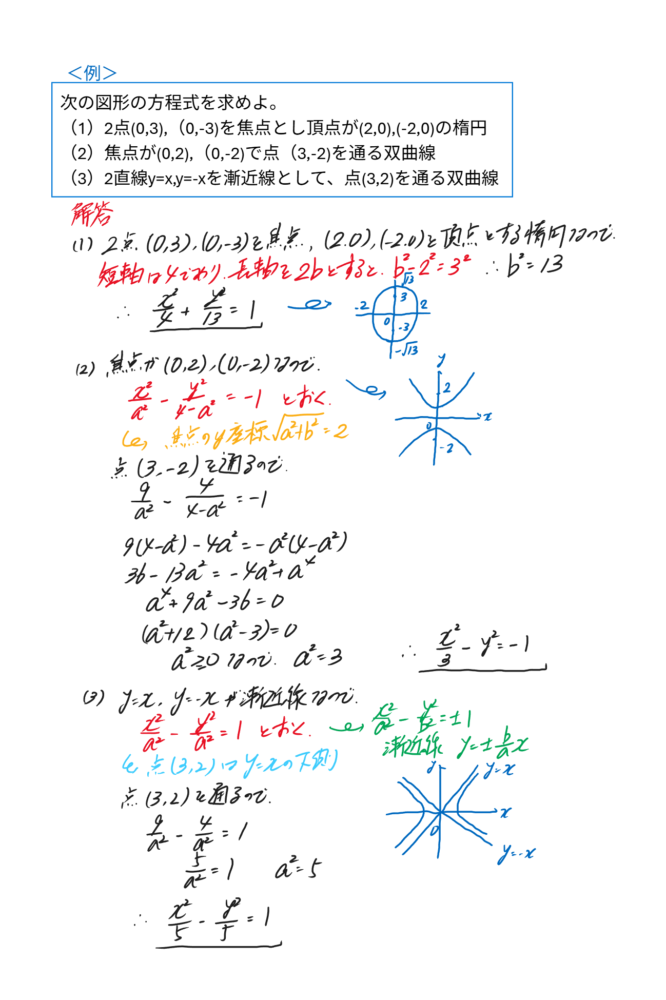 ＜例＞
次の図形の方程式を求めよ。
（1）2点(0,3),（0,-3)を焦点とし頂点が(2,0),(-2,0)の楕円
（2）焦点が(0,2),（0,-2)で点（3,-2)を通る双曲線
（3）2直線y=x,y=-xを漸近線として、点(3,2)を通る双曲線
解答
(1) 2点(0,3),(0,-3)を焦点, (2.0),(-2.0)を頂点とする楕円なので.
短軸は4であり.長軸を2bとすると. b²-2²=3² ∴b²=13
∴ x²/4 + y²/13 = 1
√13
3
-2
2
0
-3
-√13
(2) 焦点が(0,2),(0,-2)なので.
x²/a² - y²/(4-a²) = -1 とおく.
焦点のy座標√(a²+b²)=2
y
2
x
0
-2
点(3,-2)を通るので.
9/a² - 4/(4-a²) = -1
9(4-a²)-4a²=-a²(4-a²)
36-13a²=-4a²+a⁴
a⁴+9a²-36=0
(a²+12)(a²-3)=0
a²≥0なので. a²=3
∴ x²/3 - y² = -1
(3) y=x, y=-xが漸近線なので.
x²/a² - y²/a² = 1 とおく.
x²/a² - y²/b² = ±1
漸近線 y=±b/a x
点(3,2)はy=xの下側)
y
y=x
x
0
y=-x
点(3,2)を通るので.
9/a² - 4/a² = 1
5/a² = 1 a²=5
∴ x²/5 - y²/5 = 1